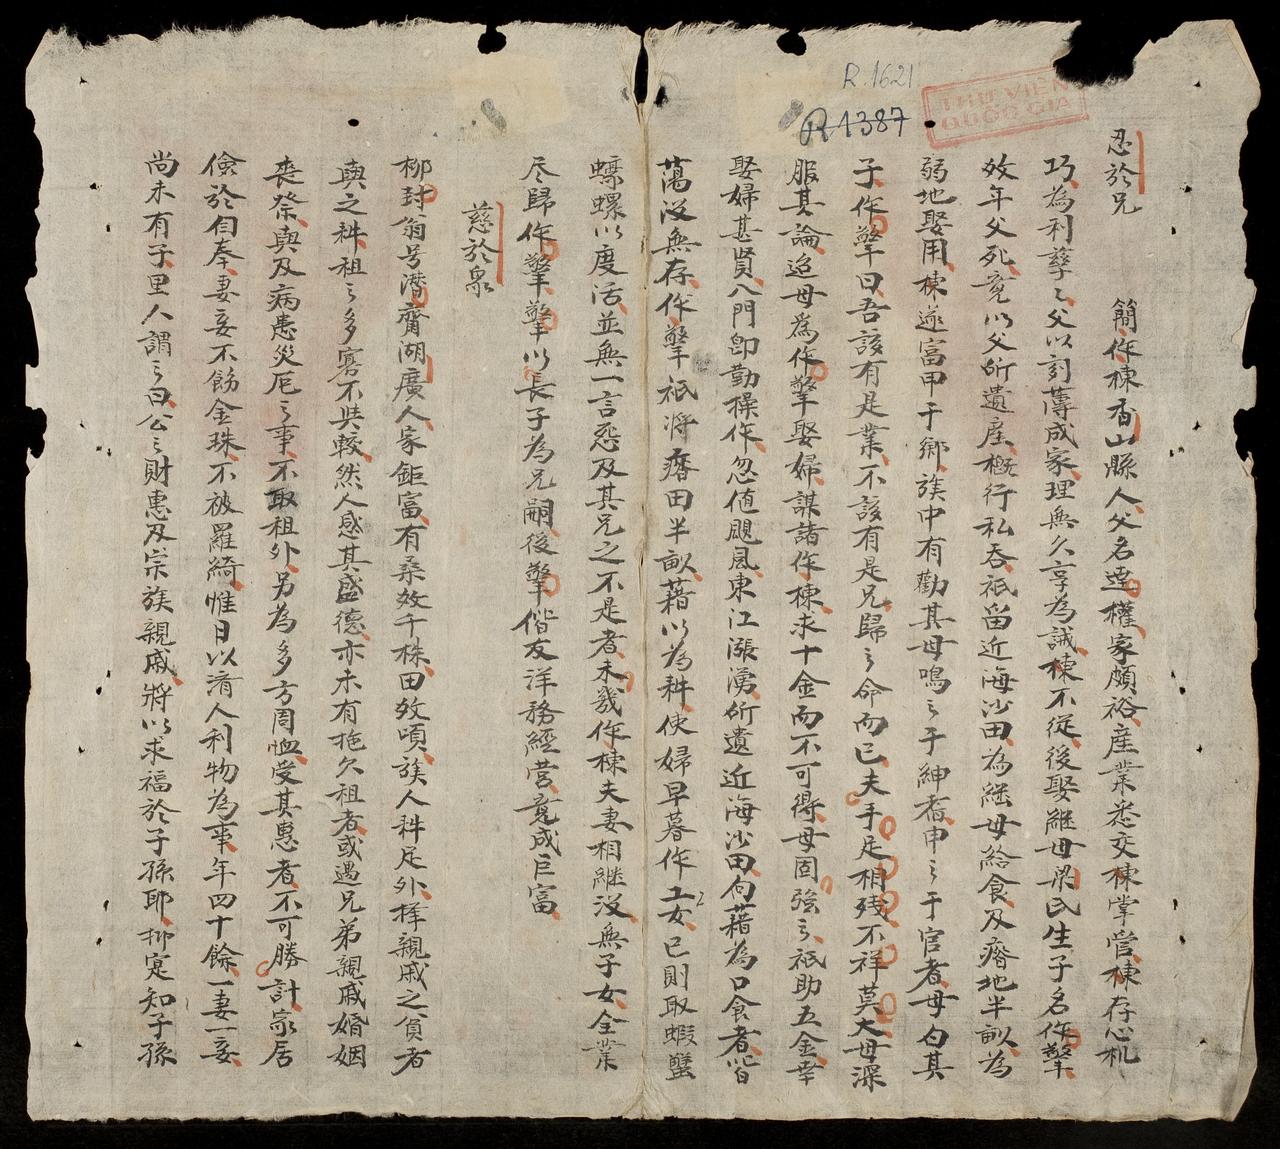 R.1621
R1387
THƯ VIỆN
QUỐC GIA
忍於兄
簡作棟香山縣人父名達權家頗裕産業悉交棟掌管棟存心机
巧為利孳之父以刻薄成家理無久享為誡棟不從後娶継母梁氏生子名作擎
效年父死竟以父所遺産概行私吞祇留近海沙田為継母給食及瘠地半畝為
弱地娶用棟遂富甲于鄉族中有勸其母鳴之于紳耆申之于官者母勾其
子作擎曰吾該有是業不該有是兄歸之命而已夫手足相残不祥莫大母深
服其論迨母為作擎娶婦謀諸作棟求十金而不可得母固強之祇助五金幸
娶婦甚賢入門卽勤操作忽値颶風東江漲湧所遺近海沙田向藉為口食者皆
蕩没無存作擎祇将瘠田半畝藉以為耕使婦早暮作工女已則取蝦蟹
螵螺以度活並無一言怨及其兄之不是者未幾作棟夫妻相継没無子女全業
尽歸作擎擎以長子為兄嗣後擎偕友洋務經营竟成巨富
慈於衆
柳封翁号潜齋湖廣人家鉅富有桑效千株田效頃族人耕足外擇親戚之貧者
與之耕租之多寡不共較然人感其盛德亦未有拖欠租者或遇兄弟親戚婚姻
喪祭與及病患災厄之事不取租外另為多方周恤受其惠者不可勝計家居
儉於自奉妻妾不飾金珠不被羅綺惟日以濟人利物為事年四十餘一妻一妾
尚未有子里人謂之曰公之財惠及宗族親戚将以求福於子孫耶抑寔知子孫